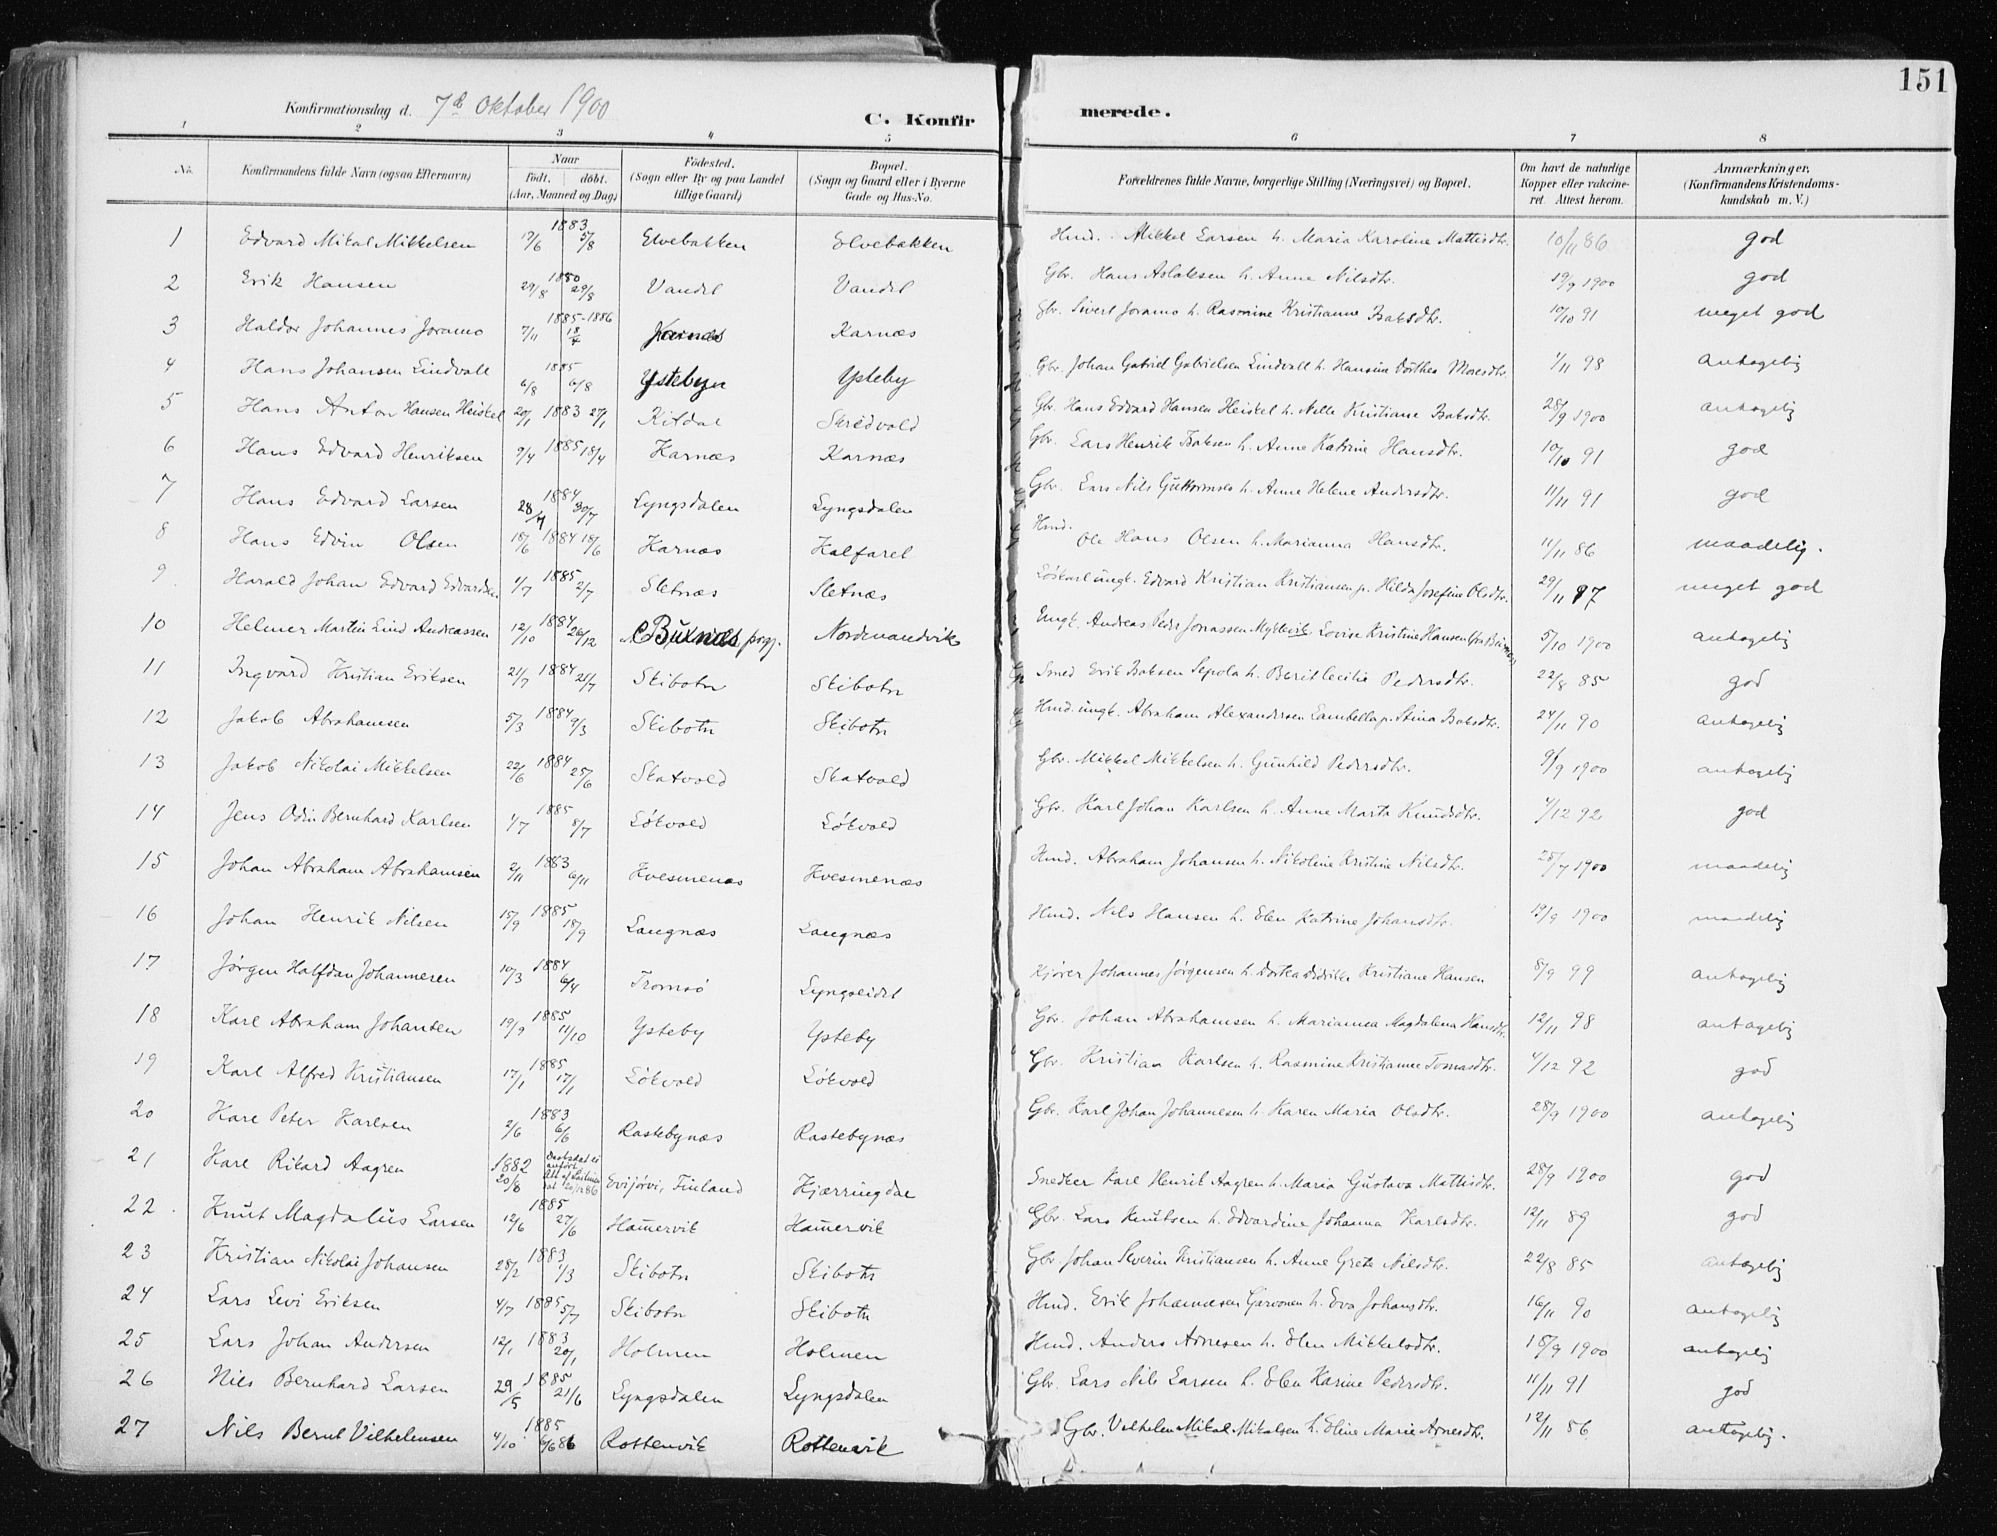 151
Konfirmationsdag d. 7de Oktober 1900
C. Konfirmerede.
1 2 3 4 5 6 7 8
No. Konfirmandens fulde Navn (ogsaa Efternavn) Naar födt. döbt. (Aar, Maaned og Dag) Födested. (Sogn eller By og paa Landet tillige Gaard) Bopæl. (Sogn og Gaard eller i Byerne Gade og Hus-No. Forældrenes fulde Navne, borgerlige Stilling (Næringsvei) og Bopæl. Om havt de naturlige Kopper eller vakcineret. Attest herom. Anmærkninger. (Konfirmandens Kristendomskundskab m. V.)
1 Edvard Mikal Mikkelsen 1883 5/8 Elvebakken Elvebakken Hmd. Mikkel Larsen h. Maria Karoline Mattisdtr. 10/11 86 god
2 Erik Hansen 1880 29/8 29/8 Vandel Vandel Gbr. Hans Aslaksen h. Anne Nilsdtr. 19/9 1900 god
3 Haldor Johannes Joramo 7/11 1885-1886 18/7 Karnæs Karnæs Gbr. Sivert Joramo h. Rasmine Kristianne Isaksdtr. 10/10 91 meget god
4 Hans Johansen Lindvall 1885 6/8 6/8 Ystebyn Ysteby Gbr. Johan Gabriel Gabrielsen Lindvall h. Hansine Dorthea Mosesdtr. 1/11 98 antagelig
5 Hans Anton Hansen Heiskel 20/1 1883 27/1 Kitdal Skredvold Gbr. Hans Edvard Hansen Heiskel h. Nelle Kristiane Isaksdtr. 28/9 1900 antagelig
6 Hans Edvard Henriksen 9/4 1885 18/4 Karnæs Karnæs Gbr. Lars Henrik Isaksen h. Anne Katrine Hansdtr. 10/10 91 god
7 Hans Edvard Larsen 28/7 1884 30/7 Lyngsdalen Lyngsdalen Gbr. Lars Nils Guttormsen h. Anne Helene Andersdtr. 11/11 91 god
8 Hans Edvin Olsen 18/6 1884 18/6 Karnæs Kalfaret Hmd. Ole Hans Olsen h. Marianna Hansdtr. 11/11 86 maadelig.
9 Harald Johan Edvard Edvardsen 1/7 1885 2/7 Sletnæs Sletnæs Löskarl ungk. Edvard Kristian Kristiansen p. Hilda Josefine Olsdtr. 29/11 87 meget god
10 Helmer Martin Lind Andreassen 12/10 1884 26/12 Buxnæs prgj. Nordmandvik Ungk. Andreas Peder Jonassen Myklevik Lovise Kristine Hansen 5/10 1900 antagelig
11 Ingvard Kristian Eriksen 21/7 1884 21/7 Skibotn Skibotn Smed Erik Isaksen Sepola h. Berit Cecilie Pedersdtr. 22/8 85 god
12 Jakob Abrahamsen 5/3 1884 9/3 Skibotn Skibotn Hmd. ungk. Abraham Alexandersen Lambella p. Stina Isaksdtr. 24/11 90 antagelig
13 Jakob Nikolai Mikkelsen 22/6 1884 25/6 Skatvold Skatvold Gbr. Mikkel Mikkelsen h. Gunhild Pedersdtr. 9/9 1900 antagelig
14 Jens Odin Bernhard Karlsen 1/7 1885 8/7 Lökvold Lökvold Gbr. Karl Johan Karlsen h. Anne Marta Knudsdtr. 1/12 92 god
15 Johan Abraham Abrahamsen 2/11 1883 6/11 Kvesmenæs Kvesmenæs Hmd. Abraham Johansen h. Nikoline Kristine Nilsdtr. 28/7 1900 maadelig
16 Johan Henrik Nilsen 15/9 1885 18/9 Langnæs Langnæs Hmd. Nils Hansen h. Elen Katrine Johansdtr. 19/9 1900 maadelig
17 Jørgen Halfdan Johannesen 10/3 1884 6/4 Tromsö Lyngseidet Kjörer Johannes Jørgensen h. Dorthea Didrikke Kristiane Hansen 8/9 99 antagelig
18 Karl Abraham Johansen 19/9 1885 11/10 Ysteby Ysteby Gbr. Johan Abrahamsen h. Marianna Magdalena Hansdtr. 12/11 98 antagelig
19 Karl Alfred Kristiansen 17/1 1885 17/1 Lökvold Lökvold Gbr. Kristian Karlsen h. Rasmine Kristianne Tomasdtr. 1/12 92 god
20 Karl Peter Karlsen 2/6 1883 6/6 Rastebynæs Rastebynæs Gbr. Karl Johan Johannesen h. Karen Maria Olsdtr. 28/9 1900 antagelig
21 Karl Rikard Aagren 1882 20/8 Evijørvi, Finland Kjærringdal Snedker Karl Henrik Aagren h. Maria Gustava Mattisdtr. 28/9 1900 god
22 Knut Magdalus Larsen 12/6 1885 27/6 Hamervik Hamervik Gbr. Lars Knutsen h. Edvardine Johanna Karlsdtr. 12/11 89 god
23 Kristian Nikolai Johansen 28/2 1883 1/3 Skibotn Skibotn Gbr. Johan Severin Kristiansen h. Anne Grete Nilsdtr. 22/8 85 antagelig
24 Lars Levi Eriksen 4/7 1885 5/7 Skibotn Skibotn Hmd. Erik Johannesen Garvonen h. Eva Johansdtr. 16/11 90 antagelig
25 Lars Johan Andersen 12/1 1883 20/1 Holmen Holmen Hmd. Anders Arnesen h. Elen Mikkelsdtr. 18/9 1900 antagelig
26 Nils Bernhard Larsen 29/5 1885 21/6 Lyngsdalen Lyngsdalen Gbr. Lars Nils Larsen h. Elen Karine Pedersdtr. 11/11 91 god
27 Nils Bernt Vilhelmsen 4/10 1885 6/6 86 Rottenvik Rottenvik Gbr. Vilhelm Mikal Mikalsen h. Eline Marie Arnesdtr. 12/11 86 antagelig.